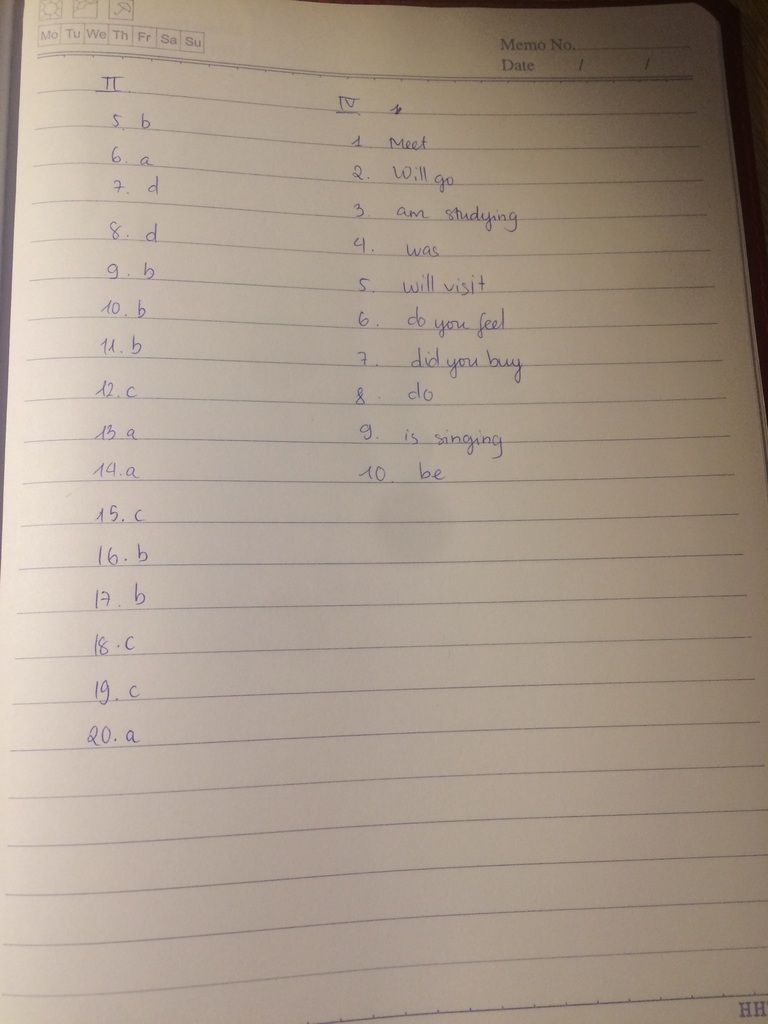 Mo Tu We Th Fr Sa Su
Memo No.
Date / /
II
5. b
6. a
7. d
8. d
9. b
10. b
11. b
12. c
13. a
14. a
15. c
16. b
17. b
18. c
19. c
20. a
IV
1 Meet
2. Will go
3. am studying
4. was
5. will visit
6. do you feel
7. did you buy
8. do
9. is singing
10. be
HH